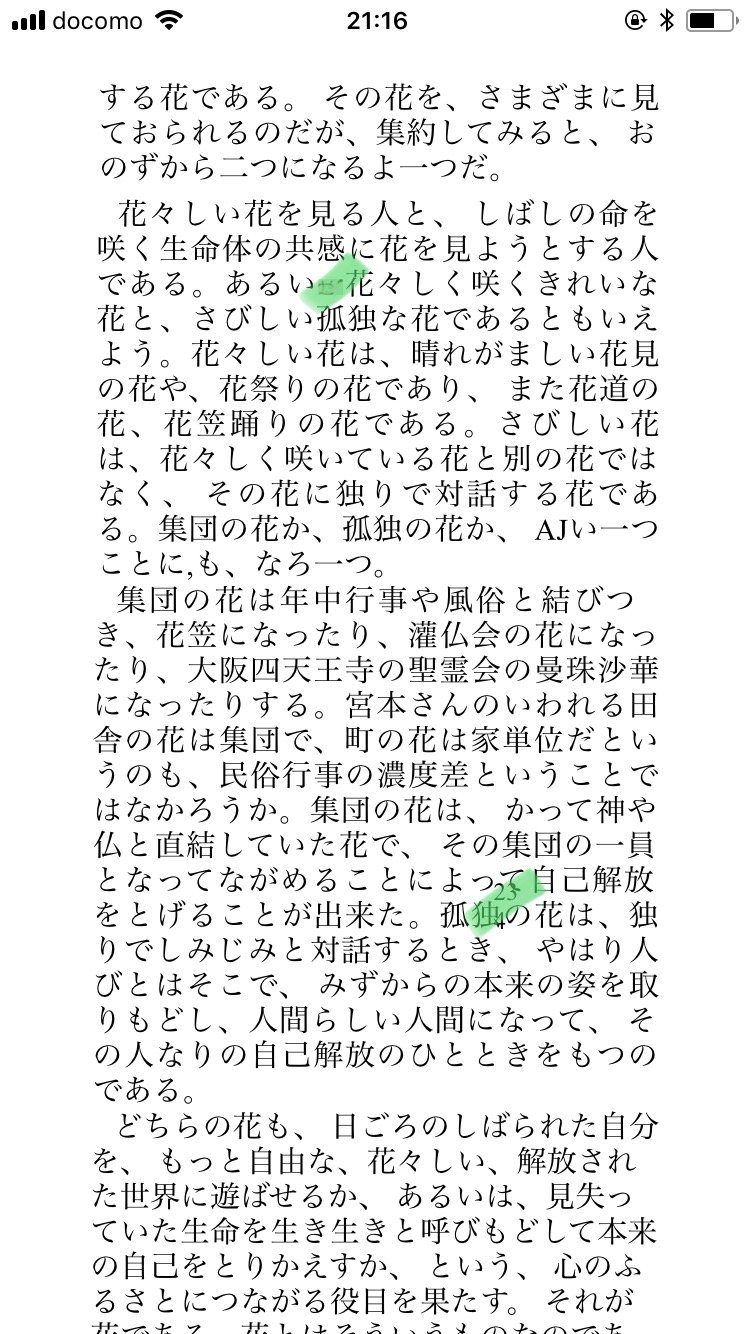 docomo
21:16
する花である。 その花を、さまざまに見
ておられるのだが、集約してみると、 お
のずから二つになるよ一つだ。
花々しい花を見る人と、 しばしの命を
咲く生命体の共感に花を見ようとする人
である。あるい花々しく咲くきれいな
花と、さびしい孤独な花であるともいえ
よう。花々しい花は、晴れがましい花見
の花や、花祭りの花であり、 また花道の
花、花笠踊りの花である。さびしい花
は、花々しく咲いている花と別の花では
なく、 その花に独りで対話する花であ
る。集団の花か、孤独の花か、 AJい一つ
ことに,も、なろ一つ。
集団の花は年中行事や風俗と結びつ
き、花笠になったり、灌仏会の花になっ
たり、大阪四天王寺の聖霊会の曼珠沙華
になったりする。宮本さんのいわれる田
舎の花は集団で、町の花は家単位だとい
うのも、民俗行事の濃度差ということで
はなかろうか。集団の花は、 かって神や
仏と直結していた花で、 その集団の一員
となってながめることによって自己解放
23
4
をとげることが出来た。孤独の花は、独
りでしみじみと対話するとき、 やはり人
びとはそこで、 みずからの本来の姿を取
りもどし、人間らしい人間になって、 そ
の人なりの自己解放のひとときをもつの
である。
どちらの花も、 日ごろのしばられた自分
を、 もっと自由な、花々しい、解放され
た世界に遊ばせるか、 あるいは、見失っ
ていた生命を生き生きと呼びもどして本来
の自己をとりかえすか、 という、 心のふ
るさとにつながる役目を果たす。 それが
花である。花とはそういうものなのであ